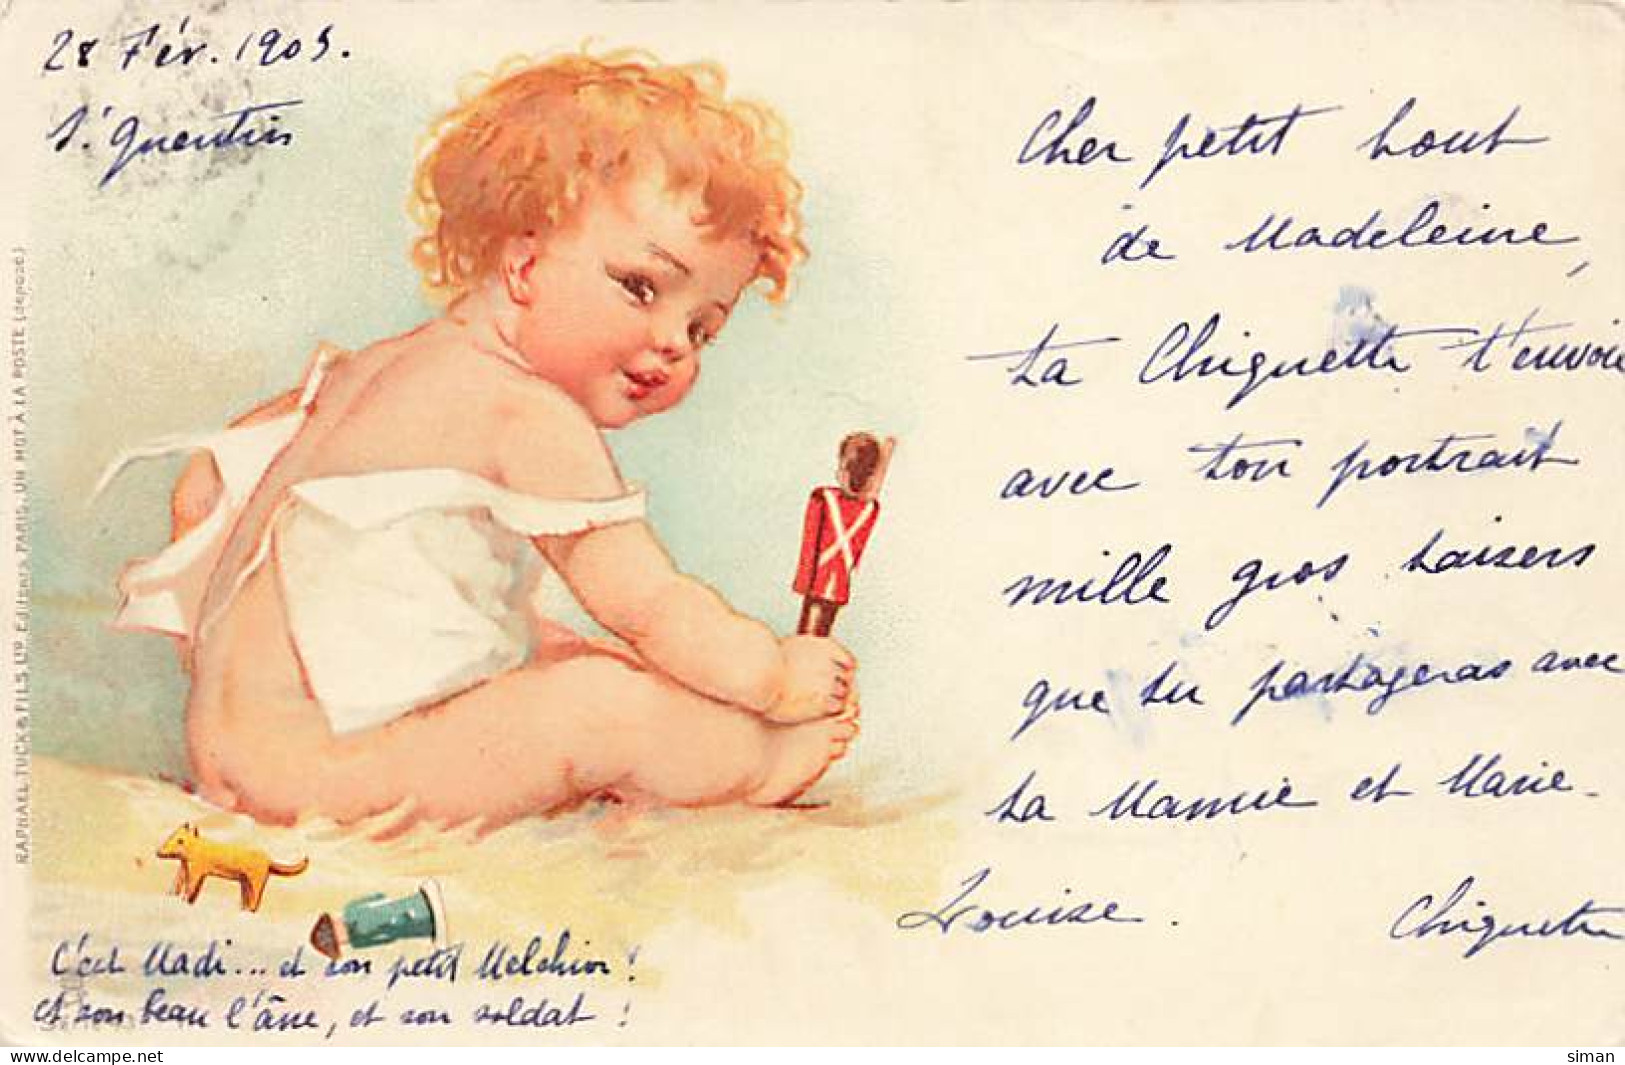 28 Fév. 1903.
St Quentin
Cher petit bout
de Madeleine,
ta Chiquette t'envoie
avec ton portrait
mille gros baisers
que tu partageras avec
ta Mamie et Marie.
Louise. Chiquette
C'est Madi... et son petit Melchior!
et son beau l'âne, et son soldat!
RAPHAEL TUCK & FILS LTD EDITEURS, PARIS. UN MOT À LA POSTE (déposé)
www.delcampe.net
siman